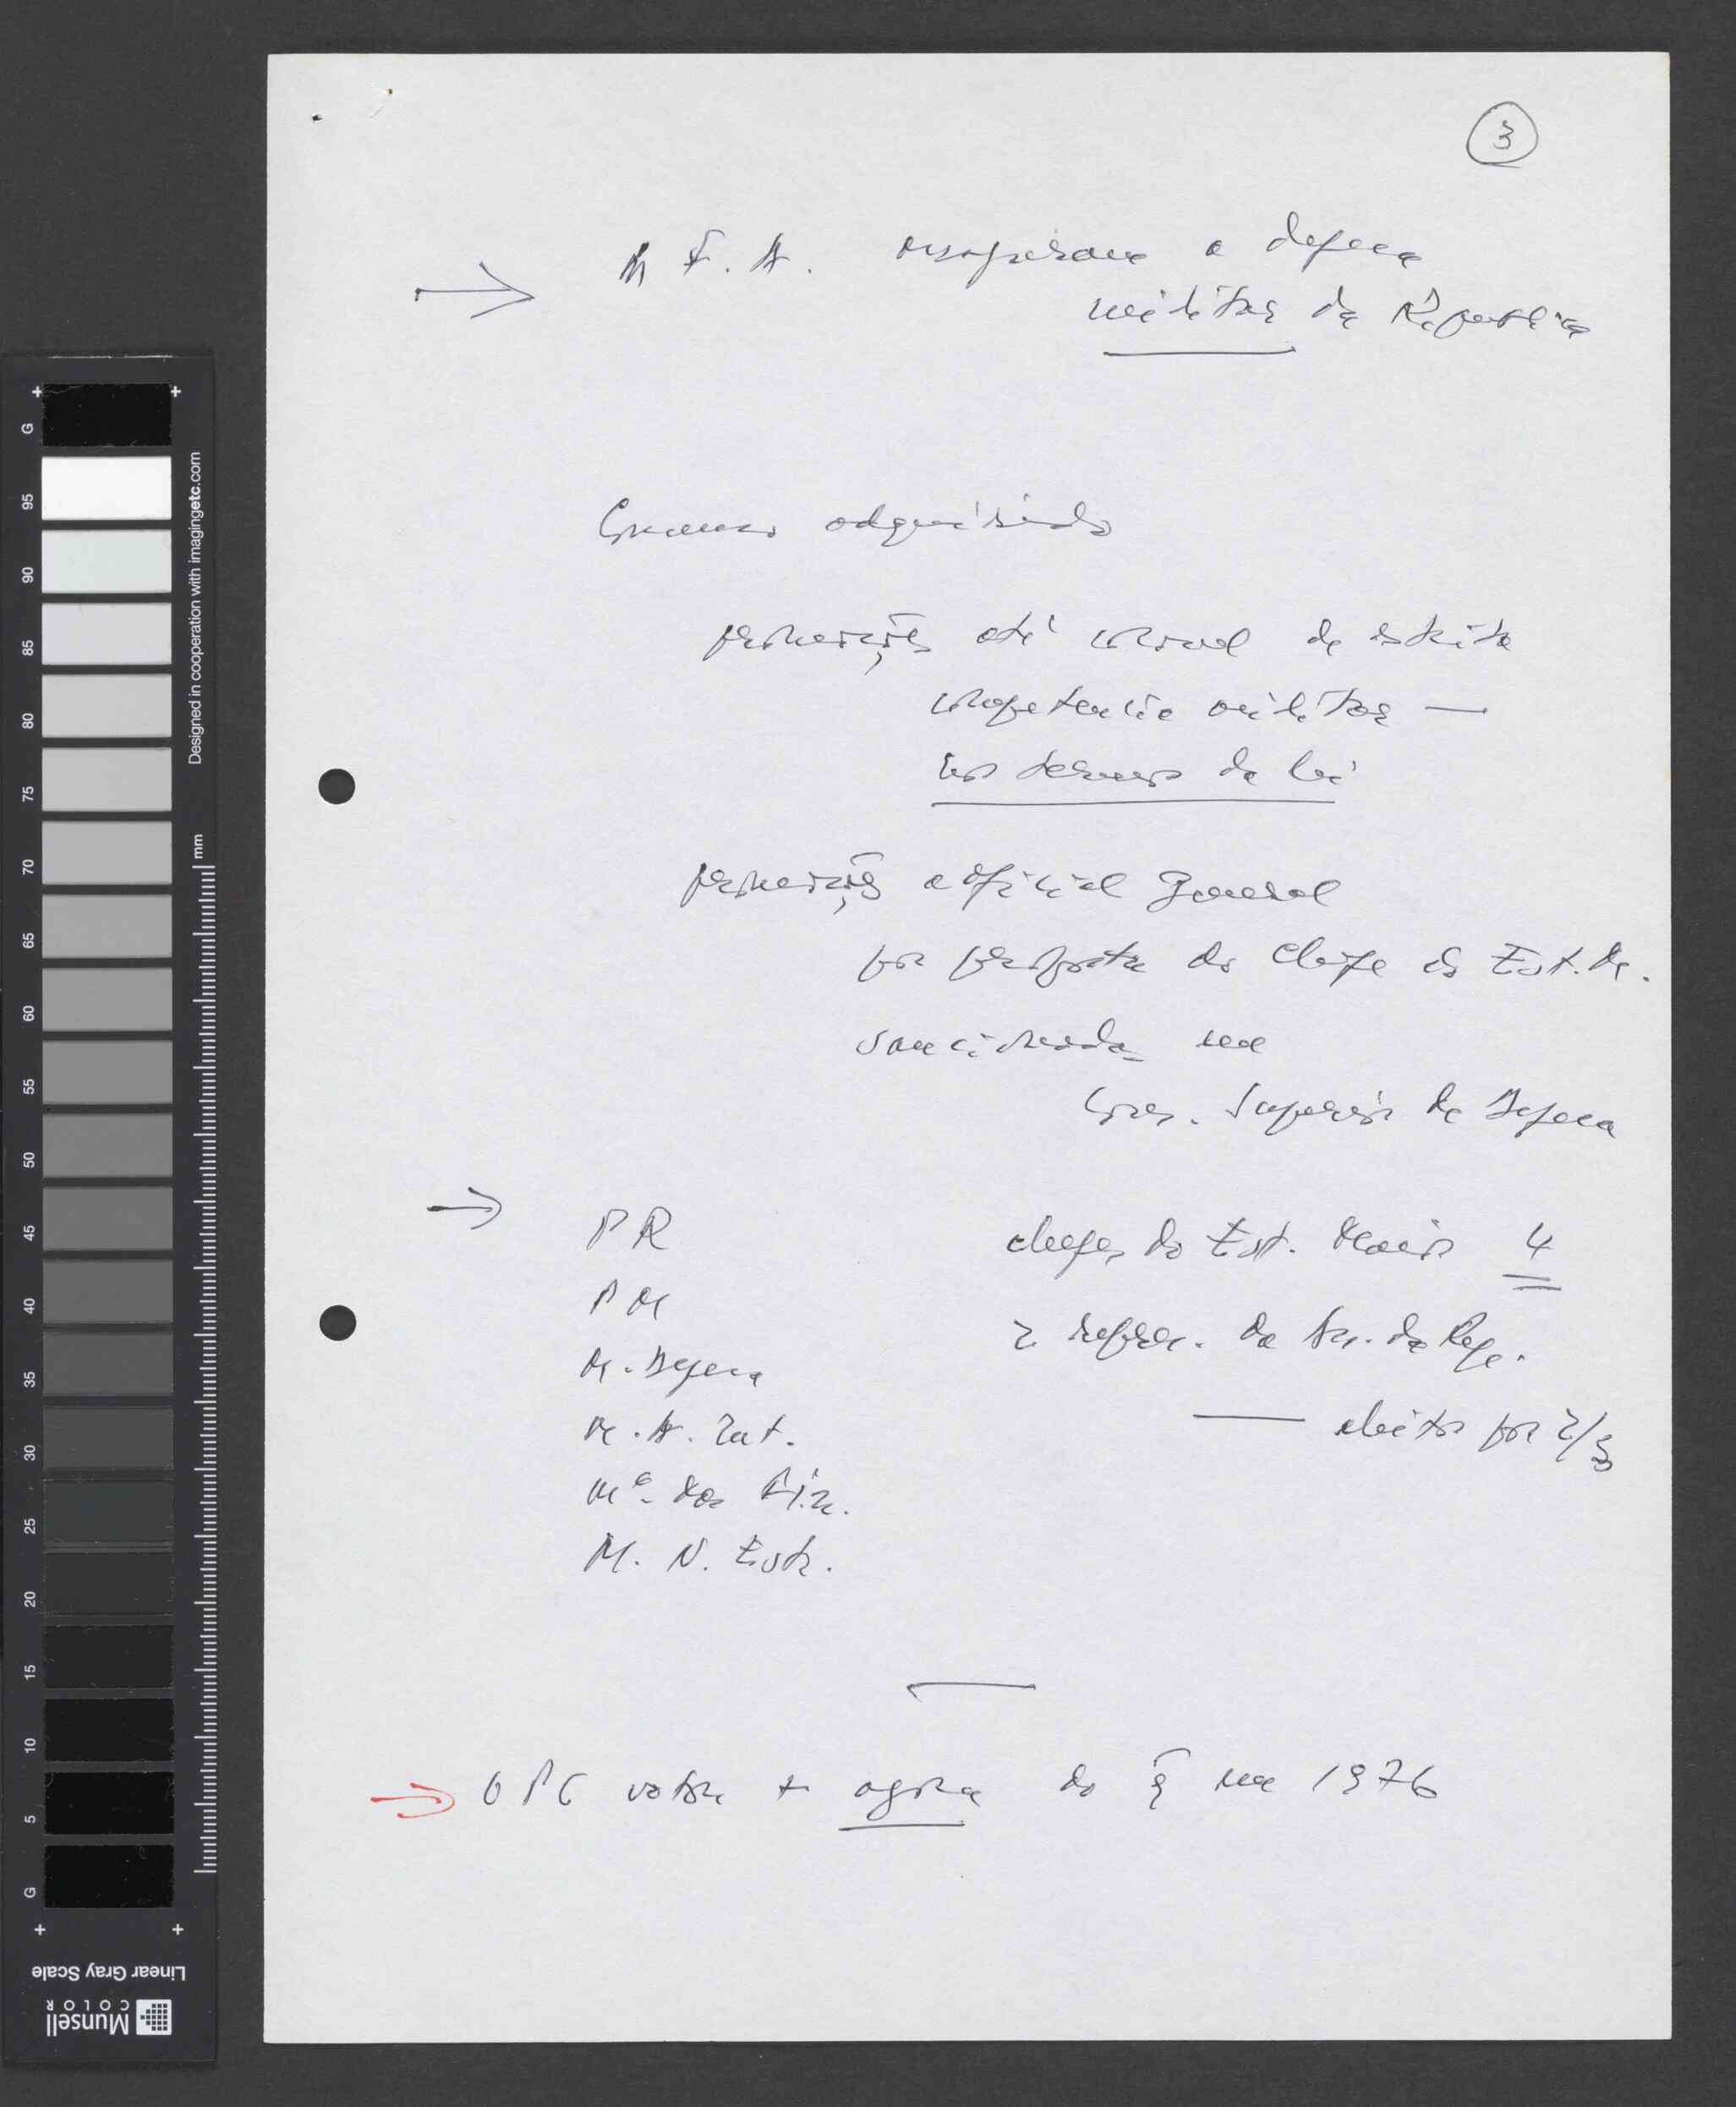 3
F. A. asseguram a defesa
militar da República
Consenso adquirido
promoções até coronel da estrita
competencia militar —
nos termos da lei
promoções a oficial General
por proposta do Chefe do Est. M.
sancionada em
Cons. Superior de Defesa
PR
PM
M. Defesa
M. A. Int.
Mº das Fin.
M. N. Estr.
chefes do Est. Maior 4
2 repres. da As. da Rep.
— eleitos por 2/3
O PC votou + agora do q̃ em 1976
G
95
90
85
80
75
70
65
60
55
50
45
40
35
30
25
20
15
10
5
G
Designed in cooperation with imagingetc.com
mm
Linear Gray Scale
Munsell
COLOR